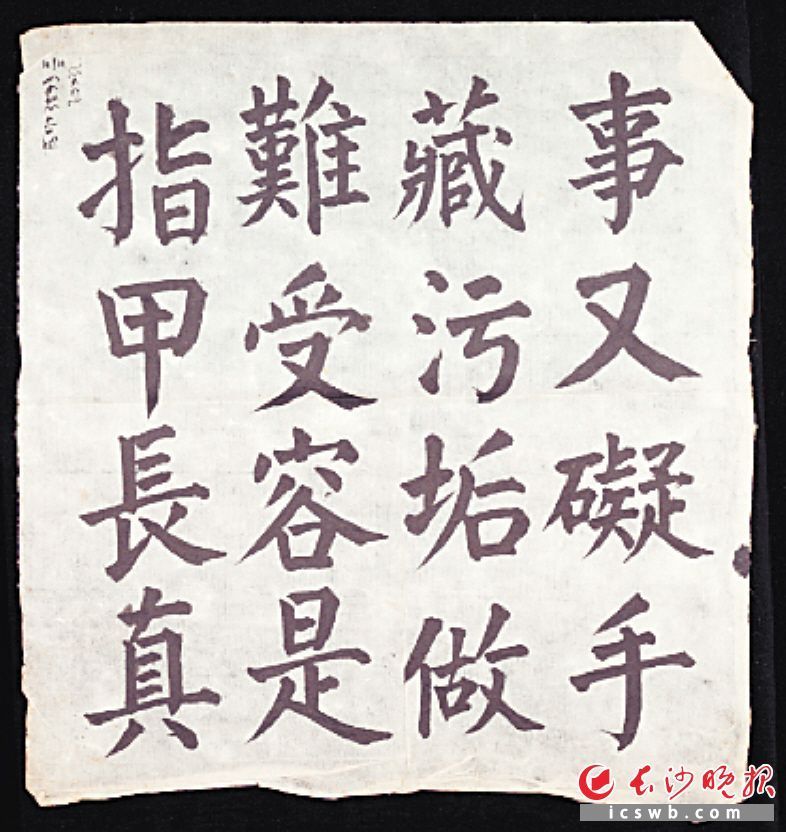 指甲長真
難受容是
藏污垢做
事又礙手
长沙晚报
icswb.com